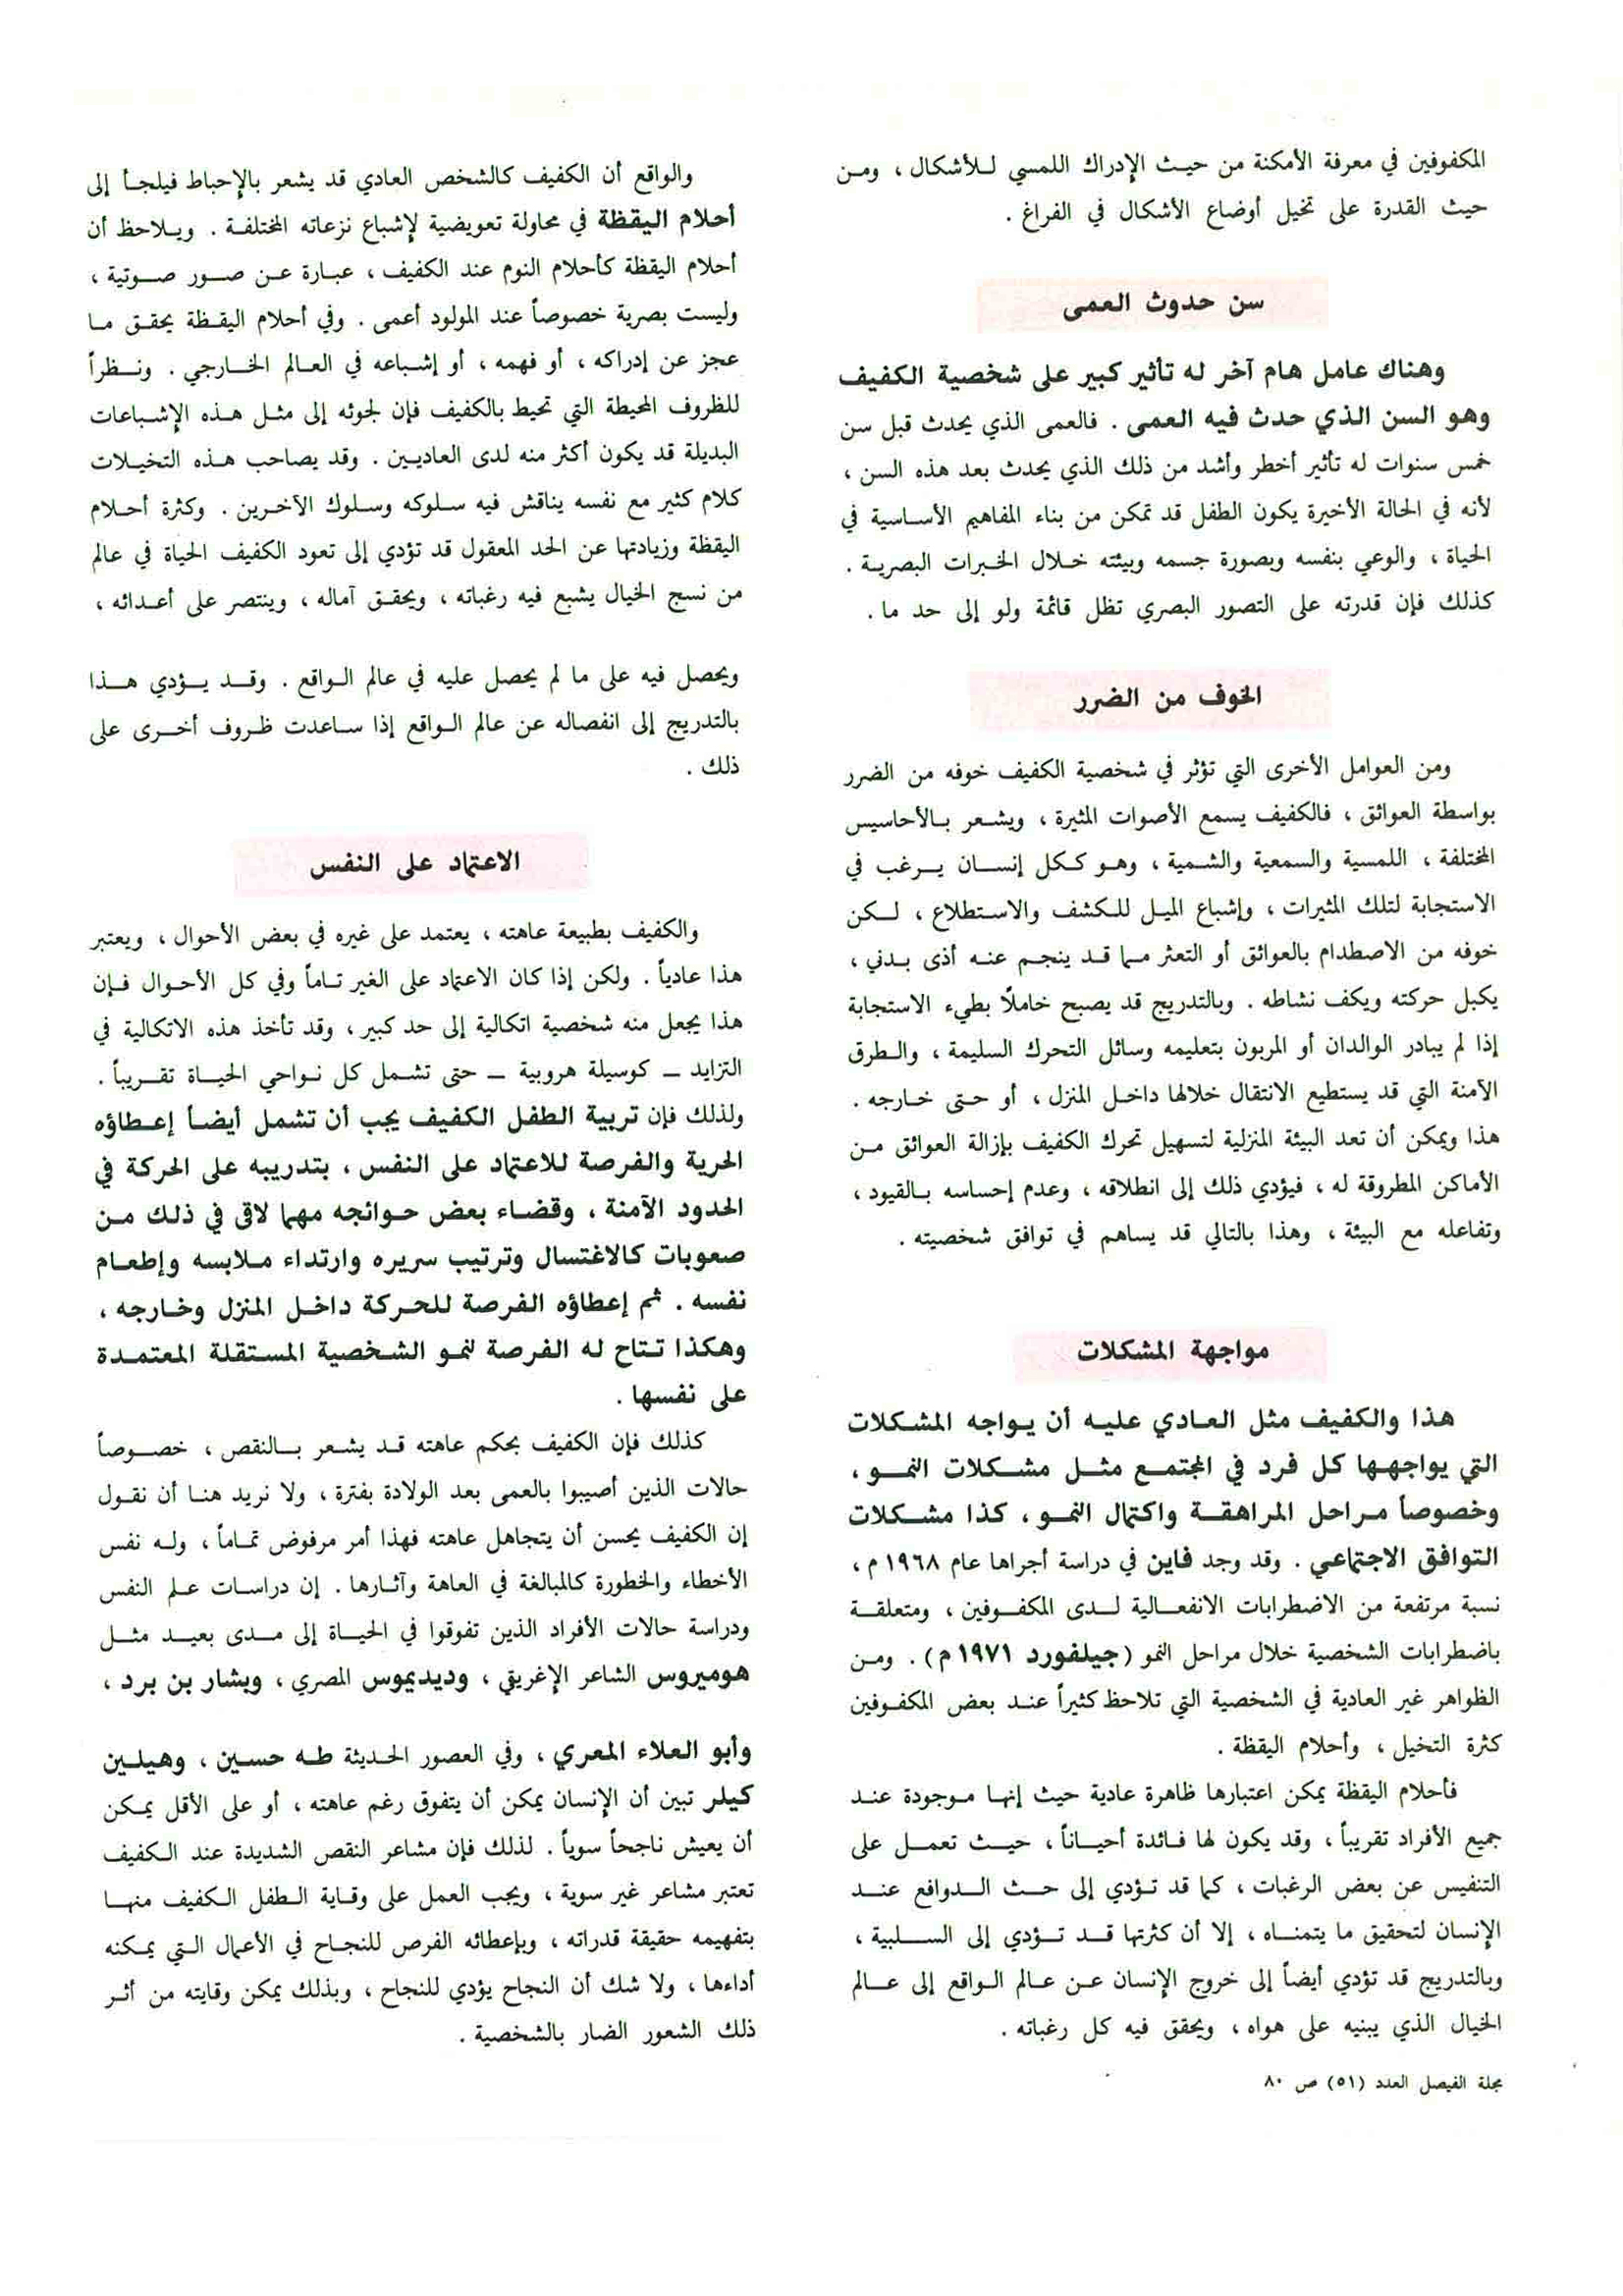 المكفوفين في معرفة الأمكنة من حيث الإدراك اللمسي للأشكال ، ومن
حيث القدرة على تخيل أوضاع الأشكال في الفراغ .
سن حدوث العمى
وهناك عامل هام آخر له تأثير كبير على شخصية الكفيف
وهو السن الذي حدث فيه العمى . فالعمى الذي يحدث قبل سن
خمس سنوات له تأثير أخطر وأشد من ذلك الذي يحدث بعد هذه السن ،
لأنه في الحالة الأخيرة يكون الطفل قد تمكن من بناء المفاهيم الأساسية في
الحياة ، والوعي بنفسه وبصورة جسمه وبيئته خلال الخبرات البصرية .
كذلك فإن قدرته على التصور البصري تظل قائمة ولو إلى حد ما .
الخوف من الضرر
ومن العوامل الأخرى التي تؤثر في شخصية الكفيف خوفه من الضرر
بواسطة العوائق ، فالكفيف يسمع الأصوات المثيرة ، ويشعر بالأحاسيس
المختلفة ، اللمسية والسمعية والشمية ، وهو ككل إنسان يرغب في
الاستجابة لتلك المثيرات ، وإشباع الميل للكشف والاستطلاع ، لكن
خوفه من الاصطدام بالعوائق أو التعثر مما قد ينجم عنه أذى بدني ،
يكبل حركته ويكف نشاطه . وبالتدريج قد يصبح خاملاً بطيء الاستجابة
إذا لم يبادر الوالدان أو المربون بتعليمه وسائل التحرك السليمة ، والطرق
الآمنة التي قد يستطيع الانتقال خلالها داخل المنزل ، أو حتى خارجه .
هذا ويمكن أن تعد البيئة المنزلية لتسهيل تحرك الكفيف بإزالة العوائق من
الأماكن المطروقة له ، فيؤدي ذلك إلى انطلاقه ، وعدم إحساسه بالقيود ،
وتفاعله مع البيئة ، وهذا بالتالي قد يساهم في توافق شخصيته .
مواجهة المشكلات
هذا والكفيف مثل العادي عليه أن يواجه المشكلات
التي يواجهها كل فرد في المجتمع مثل مشكلات النمو ،
وخصوصاً مراحل المراهقة واكتمال النمو ، كذا مشكلات
التوافق الاجتماعي . وقد وجد فاين في دراسة أجراها عام ١٩٦٨ م ،
نسبة مرتفعة من الاضطرابات الانفعالية لدى المكفوفين ، ومتعلقة
باضطرابات الشخصية خلال مراحل النمو (جيلفورد ١٩٧١ م) . ومن
الظواهر غير العادية في الشخصية التي تلاحظ كثيراً عند بعض المكفوفين
كثرة التخيل ، وأحلام اليقظة .
فأحلام اليقظة يمكن اعتبارها ظاهرة عادية حيث إنها موجودة عند
جميع الأفراد تقريباً ، وقد يكون لها فائدة أحياناً ، حيث تعمل على
التنفيس عن بعض الرغبات ، كما قد تؤدي إلى حث الدوافع عند
الإنسان لتحقيق ما يتمناه ، إلا أن كثرتها قد تؤدي إلى السلبية ،
وبالتدريج قد تؤدي أيضاً إلى خروج الإنسان عن عالم الواقع إلى عالم
الخيال الذي يبنيه على هواه ، ويحقق فيه كل رغباته .
مجلة الفيصل العدد (٥١) ص ٨٠
والواقع أن الكفيف كالشخص العادي قد يشعر بالإحباط فيلجأ إلى
أحلام اليقظة في محاولة تعويضية لإشباع نزعاته المختلفة . ويلاحظ أن
أحلام اليقظة كأحلام النوم عند الكفيف ، عبارة عن صور صوتية ،
وليست بصرية خصوصاً عند المولود أعمى . وفي أحلام اليقظة يحقق ما
عجز عن إدراكه ، أو فهمه ، أو إشباعه في العالم الخارجي . ونظراً
للظروف المحيطة التي تحيط بالكفيف فإن لجوئه إلى مثل هذه الإشباعات
البديلة قد يكون أكثر منه لدى العاديين . وقد يصاحب هذه التخيلات
كلام كثير مع نفسه يناقش فيه سلوكه وسلوك الآخرين . وكثرة أحلام
اليقظة وزيادتها عن الحد المعقول قد تؤدي إلى تعود الكفيف الحياة في عالم
من نسج الخيال يشبع فيه رغباته ، ويحقق آماله ، وينتصر على أعدائه ،
ويحصل فيه على ما لم يحصل عليه في عالم الواقع . وقد يؤدي هذا
بالتدريج إلى انفصاله عن عالم الواقع إذا ساعدت ظروف أخرى على
ذلك .
الاعتماد على النفس
والكفيف بطبيعة عاهته ، يعتمد على غيره في بعض الأحوال ، ويعتبر
هذا عادياً . ولكن إذا كان الاعتماد على الغير تاماً وفي كل الأحوال فإن
هذا يجعل منه شخصية اتكالية إلى حد كبير ، وقد تأخذ هذه الاتكالية في
التزايد ــ كوسيلة هروبية ــ حتى تشمل كل نواحي الحياة تقريباً .
ولذلك فإن تربية الطفل الكفيف يجب أن تشمل أيضاً إعطاؤه
الحرية والفرصة للاعتماد على النفس ، بتدريبه على الحركة في
الحدود الآمنة ، وقضاء بعض حوائجه مهما لاقى في ذلك من
صعوبات كالاغتسال وترتيب سريره وارتداء ملابسه وإطعام
نفسه . ثم إعطاؤه الفرصة للحركة داخل المنزل وخارجه ،
وهكذا تتاح له الفرصة لنمو الشخصية المستقلة المعتمدة
على نفسها .
كذلك فإن الكفيف بحكم عاهته قد يشعر بالنقص ، خصوصاً
حالات الذين أصيبوا بالعمى بعد الولادة بفترة ، ولا نريد هنا أن نقول
إن الكفيف يحسن أن يتجاهل عاهته فهذا أمر مرفوض تماماً ، وله نفس
الأخطاء والخطورة كالمبالغة في العاهة وآثارها . إن دراسات علم النفس
ودراسة حالات الأفراد الذين تفوقوا في الحياة إلى مدى بعيد مثل
هوميروس الشاعر الإغريقي ، وديديموس المصري ، وبشار بن برد ،
وأبو العلاء المعري ، وفي العصور الحديثة طه حسين ، وهيلين
كيلر تبين أن الإنسان يمكن أن يتفوق رغم عاهته ، أو على الأقل يمكن
أن يعيش ناجحاً سوياً . لذلك فإن مشاعر النقص الشديدة عند الكفيف
تعتبر مشاعر غير سوية ، ويجب العمل على وقاية الطفل الكفيف منها
بتفهيمه حقيقة قدراته ، وبإعطائه الفرص للنجاح في الأعمال التي يمكنه
أداءها ، ولا شك أن النجاح يؤدي للنجاح ، وبذلك يمكن وقايته من أثر
ذلك الشعور الضار بالشخصية .